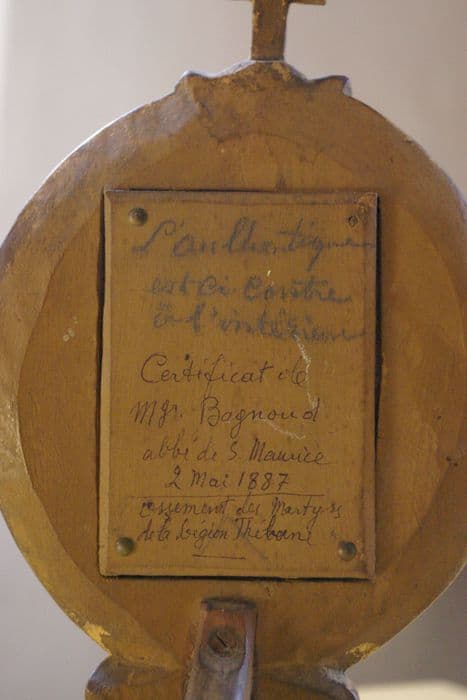 L'authentique
est ci contre
à l'intérieur
Certificat de
Mgr. Bagnoud
abbé de S. Maurice
2 Mai 1887
ossement des Martyrs
de la Légion Thébaine